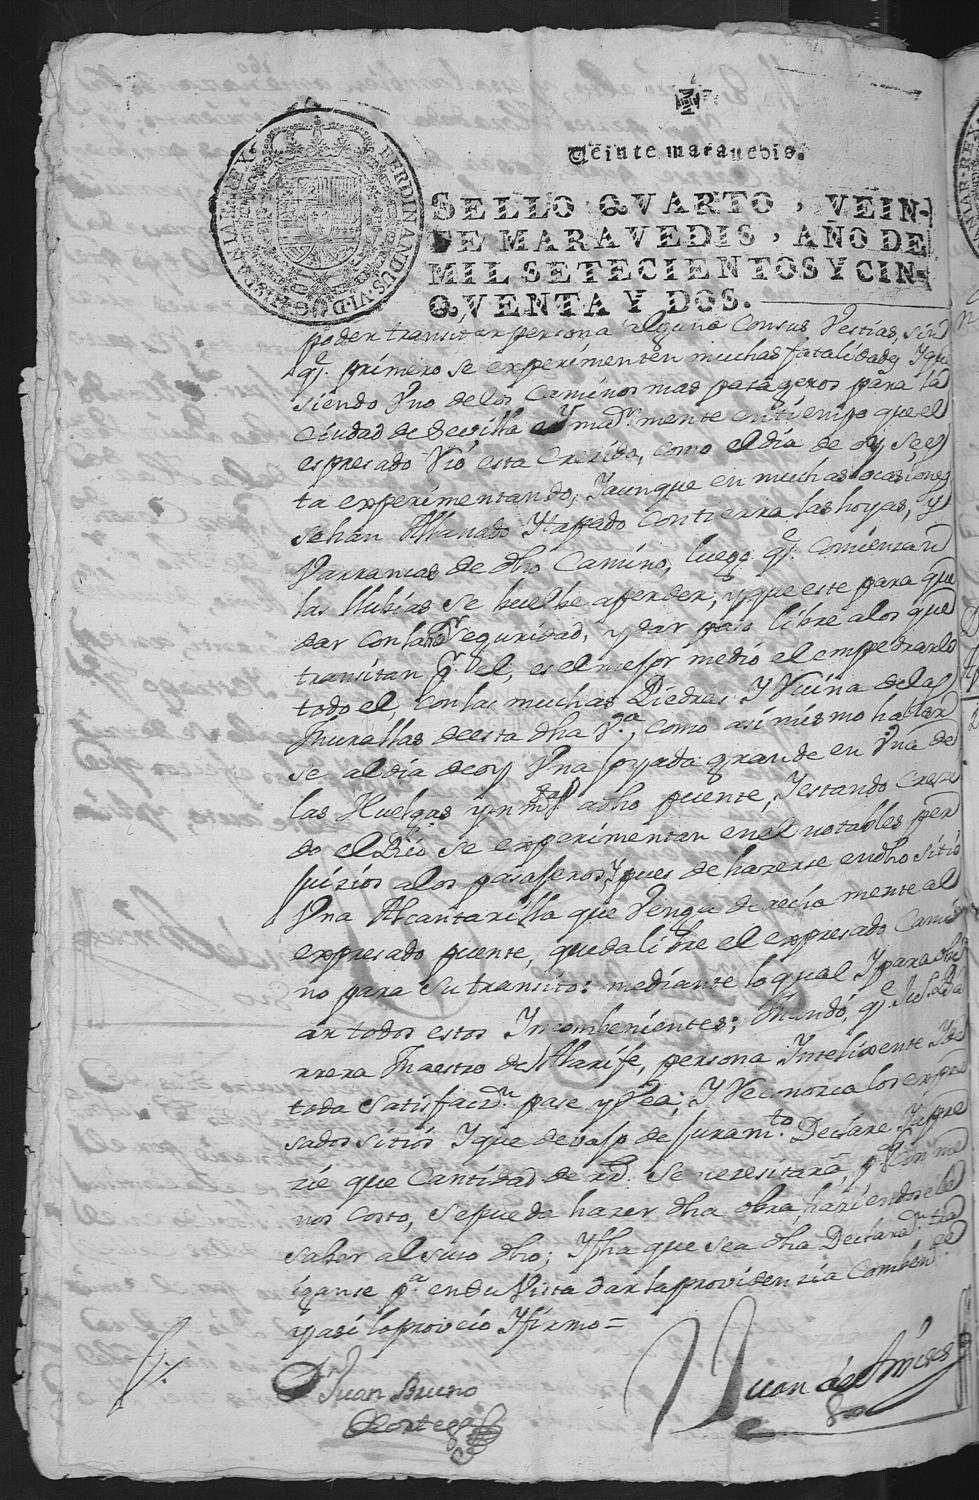 HISPANIAR. REX. FERDINANDUS. VI. D. G.
Veinte maravedis.
SELLO QVARTO, VEIN-
TE MARAVEDIS, AÑO DE
MIL SETECIENTOS Y CIN-
QVENTA Y DOS.
poder transitar persona alguna Consus Vestias, sin
q.e primero se experimenten muchas fatalidades Yque
siendo Vno delos Caminos mas pasageros para la
Ciudad de Sevilla mente entiempo que el
espresado Rio esta Crecido, como el dia de oy se es
ta experimentando, Yaunque en muchas ocasiones
sehan Allanado Ytapado Contierra las hoyas, y
Varrancas de dho Camino, luego q.e Comienzan
las llubias se buelbe aperder, y que este para que
dar Conla seguridad, y dar paso libre alos que
transitan p.r el, es el mejor medio el empedrarlo
todo el, Con las muchas Piedras Y Ruina delas
Murallas deesta dha V.a, Como asimismo haller
se al dia deoy Vna oyada grande en Vna de
las Huelgas ynm.ta adho puente, Yestando Creci
do el Rio se experimentan enel notables per
juizios alos pasajeros, Ypues de hazerse endho sitio
Vna Alcantarilla que Venga derecha mente al
expresado puente, queda libre el expresado Cami
no para su transito: mediante lo qual Y para obi
ar todos estos Yncombenientes; Mando, q.e
rrera Maestro de Alarife, persona Ynteligente Y de
toda satisfaz.n pase y Vea; Y Reconozca los expre
sados sitios Yque devajo de juram.to Declare Yespre
cie que Cantidad de r.s se necesitara, p.a Con me
nos Costo, se pueda hazer dha obra, haziendosele
saber al suso dho; Yfha que sea dha Declaraz.n tra
igance p.a en su Vista dar la providenzia Comben.te
y asi lo proveio Yfirmo =
Juan Bruno
Hortega
Juan de